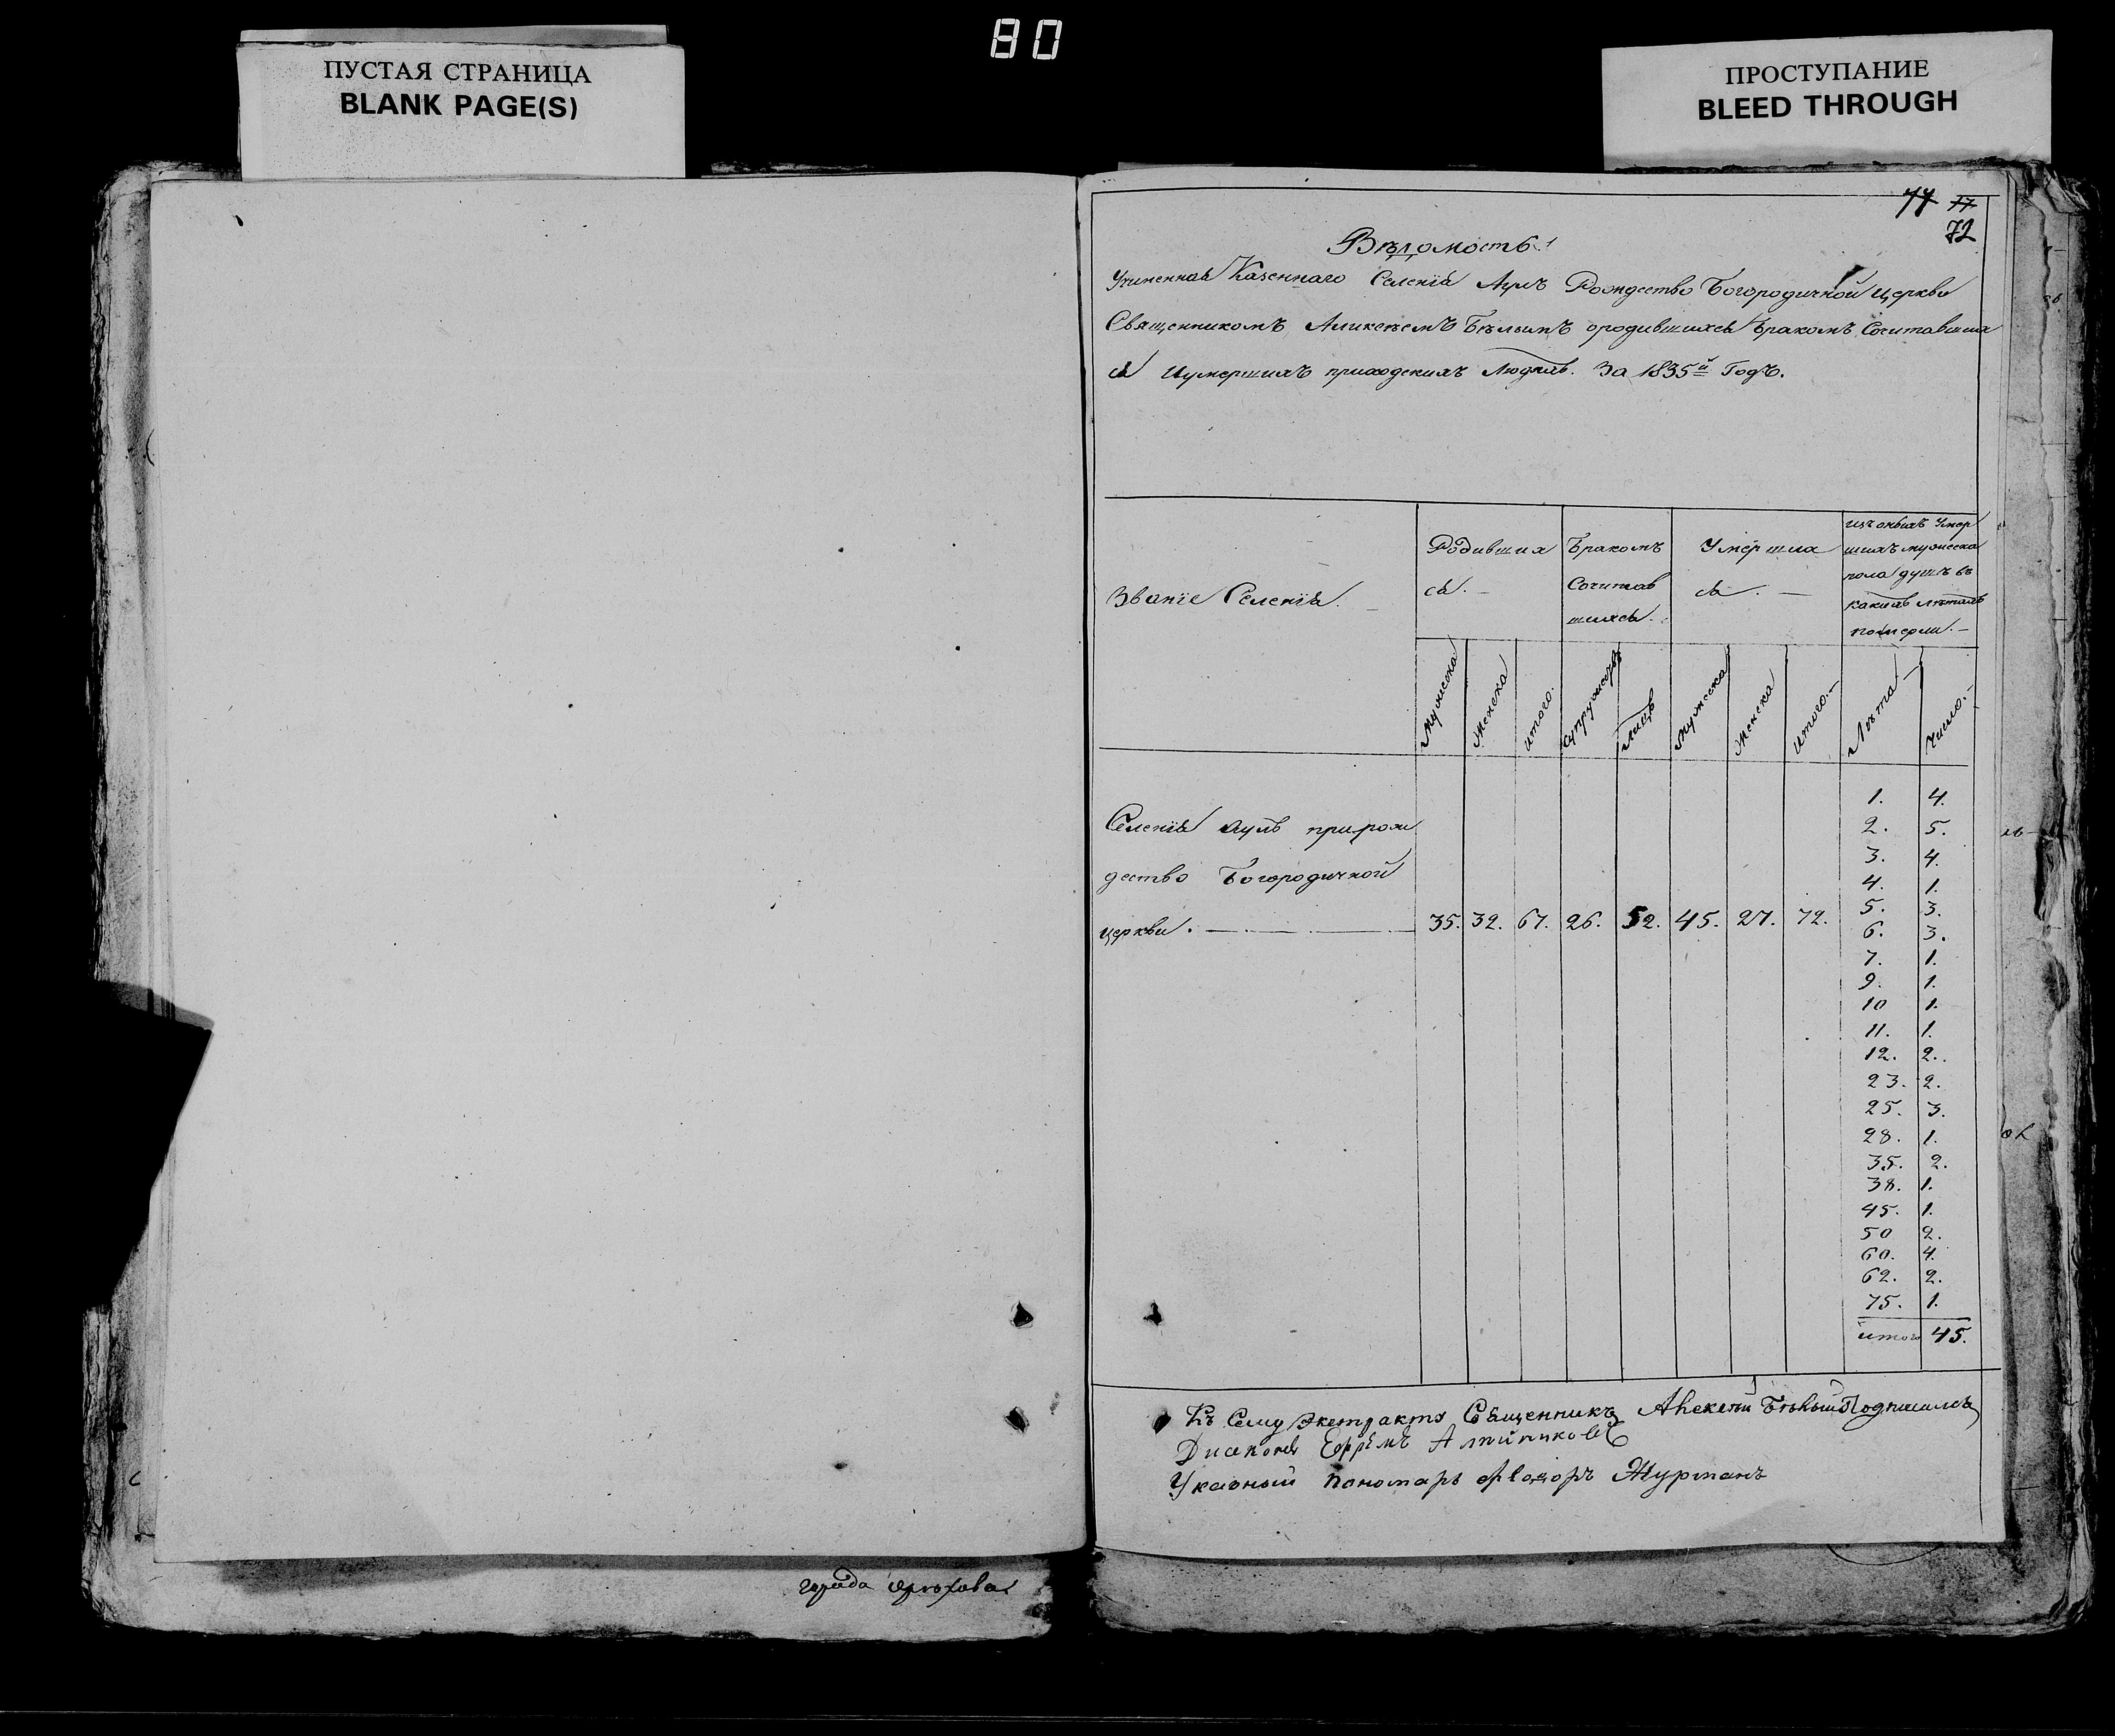 80
ПУСТАЯ СТРАНИЦА
BLANK PAGE(S)
ПРОСТУПАНИЕ
BLEED THROUGH
77
72
Вѣдомость
Учиненная Казеннаго Селенія Аулъ Рождество Богородичной церкви
Священникомъ Аликсѣемъ Бѣлымъ ородившихся бракомъ Сочитавших
ся Иумершихъ приходскихъ Людяхъ. За 1835й Годъ.
Званіе Селенія.
Родивших
ся.
Бракомъ
Сочитав
шихся.
Умерших
ся.
изъ оныхъ Умер
шихъ мужеска
пола душъ въ
какихъ лѣтахъ
померли.
мужеска
женска
итого.
супружествъ
лицъ
мужеска
женска
итого.
Лѣта
Число.
Селенія Аулъ прирож
дество Богородичной
церкви. 35. 32. 67. 26. 52. 45. 27. 72.
1. 4.
2. 5.
3. 4.
4. 1.
5. 3.
6. 3.
7. 1.
9. 1.
10 1.
11. 1.
12. 2.
23. 2.
25. 3.
28. 1.
35. 2.
38. 1.
45. 1.
50 2.
60. 4.
62. 2.
75. 1.
итого 45.
Къ Сему Экстракту Священникъ Алексѣй Бѣлый Подписался
Диаконъ Ефремъ
Указный пономарь Ѳеодоръ Журманъ
города